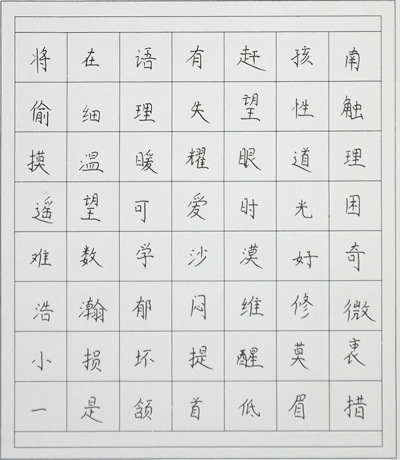 将在语有赶孩南
偷细理失望性触
摸温暖耀眼道理
遥望可爱时光困
难数学沙漠好奇
浩瀚郁闷维修微
小损坏提醒莫衷
一是颔首低眉措